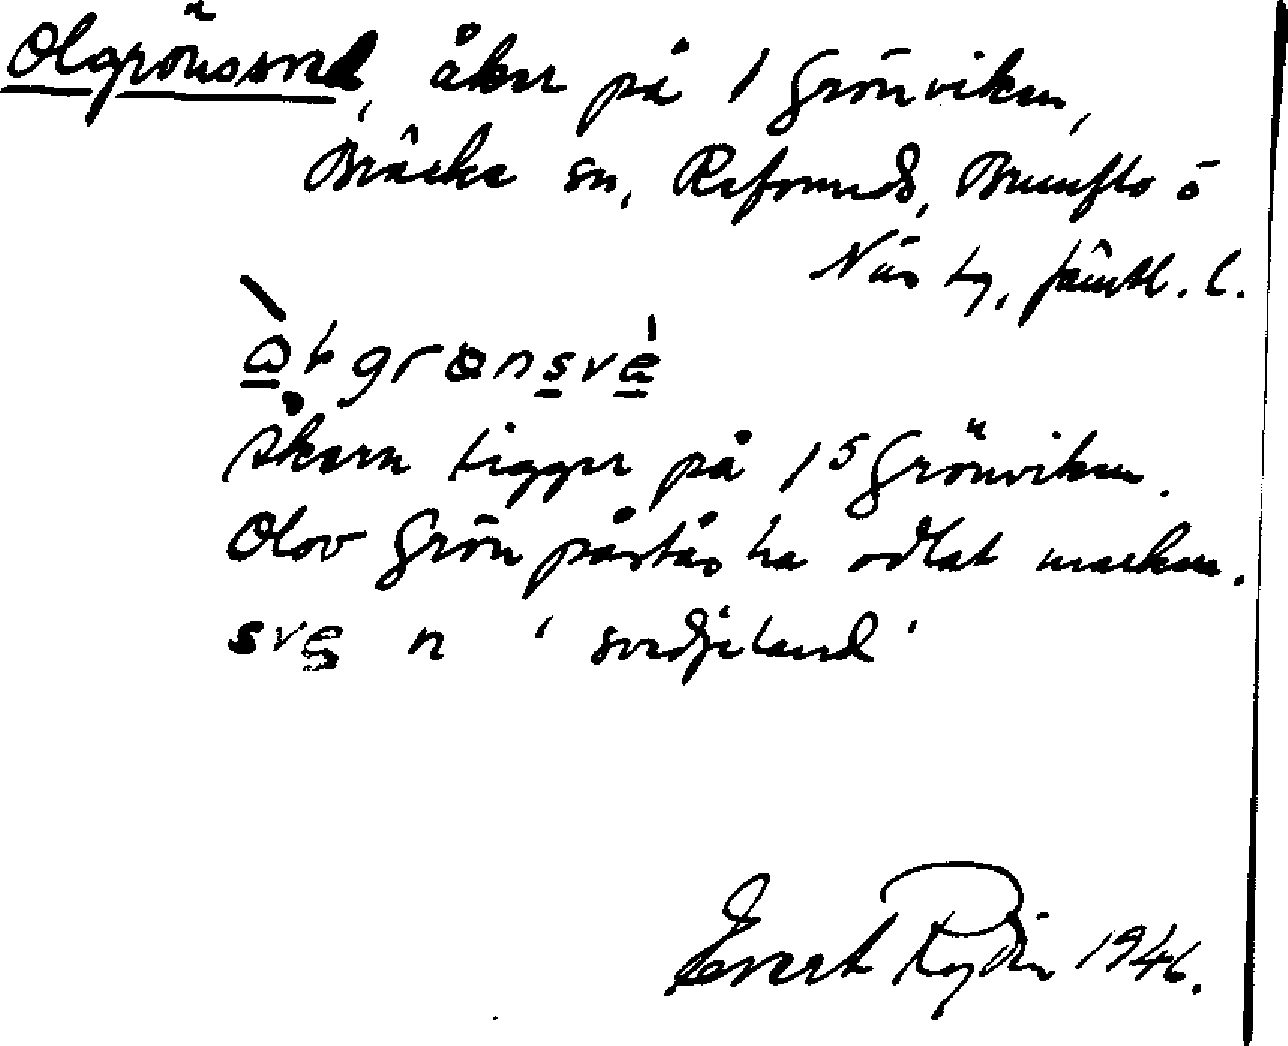 Olgrönsved, åker på 1 Grönviken,
Bräcke sn, Refsunds, Brunflo o
Näs tg, Jämtl. l.
grönsve
Åkern ligger på 1⁵ Grönviken.
Olov Grön påstås ha odlat marken.
sve n 'svedjeland'
Evert Rydin 1946.